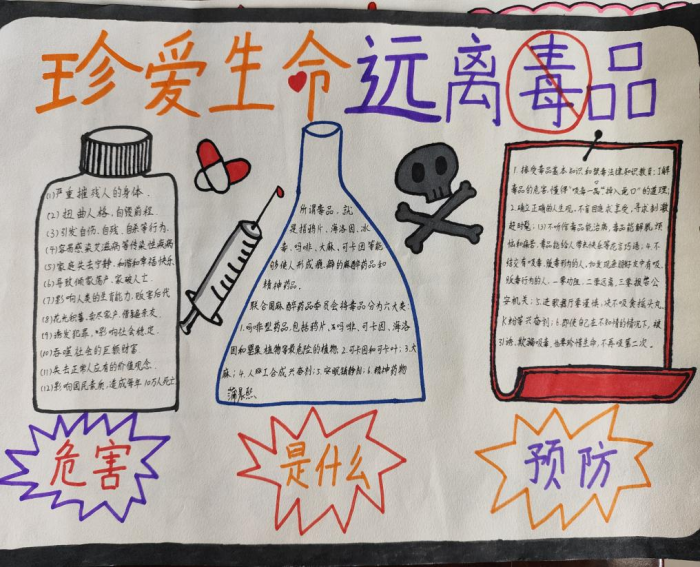 珍爱生命远离毒品
(1)严重摧残人的身体.
(2)扭曲人格,自毁前程
(3)引发自伤、自残、自杀等行为.
(4)容易感染艾滋病等传染性疾病
(5)家庭失去宁静、和谐和幸福快乐.
(6)导致倾家荡产、家破人亡
(7)影响人类的生育能力、贻害后代
(9)诱发犯罪,影响社会稳定.
(10)吞噬社会的巨额财富
(11)失去正常人应有的价值观念.
(12)影响国民素质,造成每年10万人死亡
所谓毒品,就
是指鸦片、海洛因、冰
毒、吗啡、大麻、可卡因等能
够使人形成瘾癖的麻醉药品和
精神药品.
联合国麻醉药品委员会将毒品分为六大类:
1.吗啡型药品,包括鸦片、吗啡、可卡因、海洛
因和罂粟植物等最危险的植物;2.可卡因和可卡叶;3.大
麻;4.人工合成兴奋剂;5.安眠镇静剂;6.精神药物
1.接受毒品基本知识和禁毒法律知识教育,了解
毒品的危害,懂得"吸毒一口,掉入虎口"的道理;
2.确立正确的人生观,不盲目追求享受,寻求刺激,
超时髦;(3)不听信毒品能治病,毒品能解脱烦
恼和痛苦,毒品能给人带来快乐等花言巧语;4.不
结交有吸毒、贩毒行为的人.如发现亲朋好友中有吸、
贩毒行为的人,一要劝阻,二要远离,三要报告公
安机关;5.进歌舞厅要谨慎,决不吸食摇头丸、
K粉等兴奋剂;6.即使自己在不知情的情况下,被
引诱、欺骗吸毒,也要珍惜生命,不再吸第二次.
危害
是什么
预防